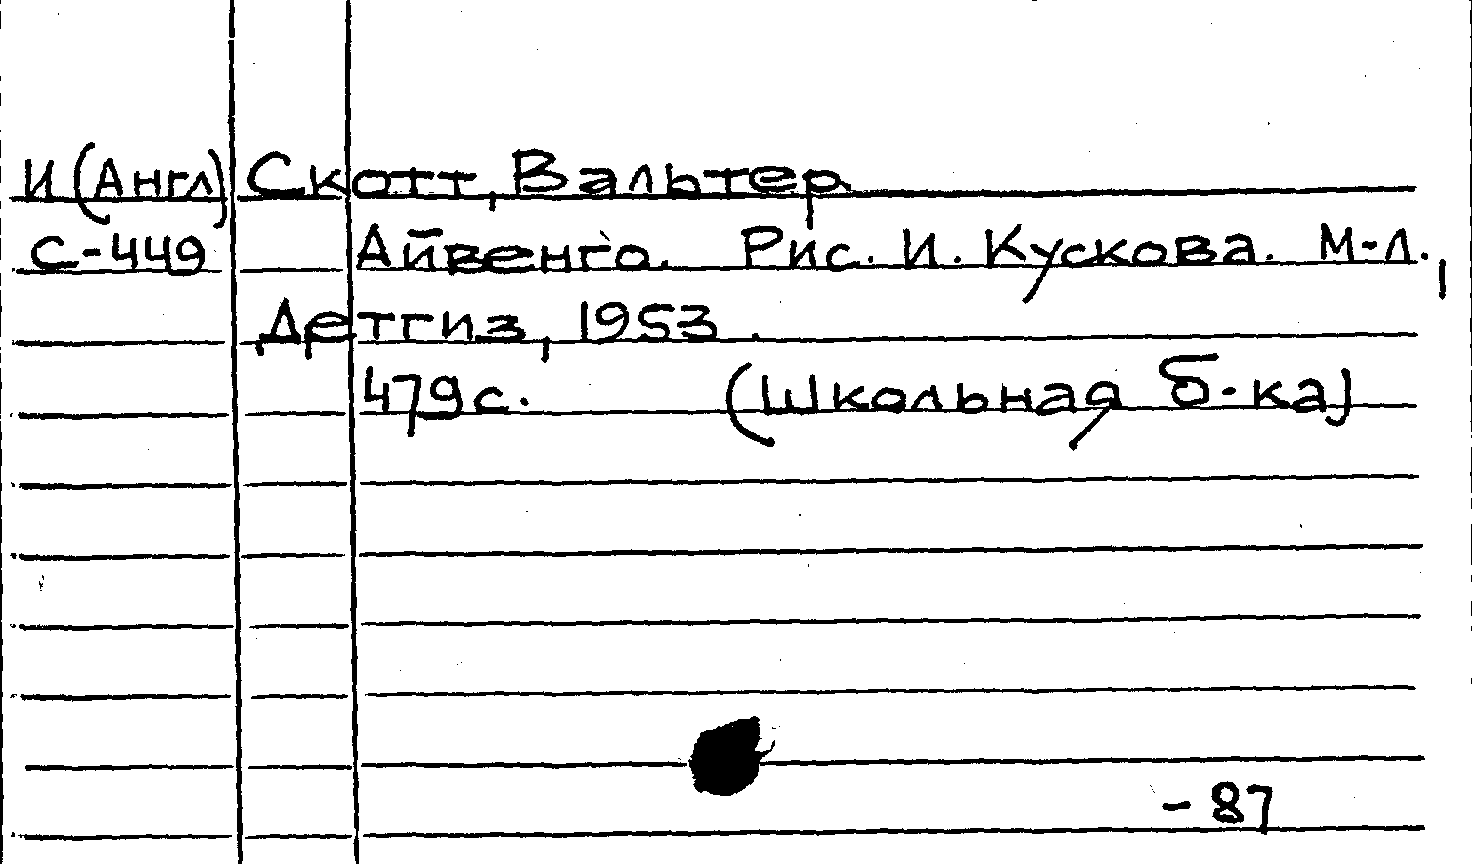 И(Англ) Скотт, Вальтер
С-449 Айвенго. Рис. И. Кускова. М-Л.,
Детгиз, 1953.
479с. (Школьная б-ка)
-87